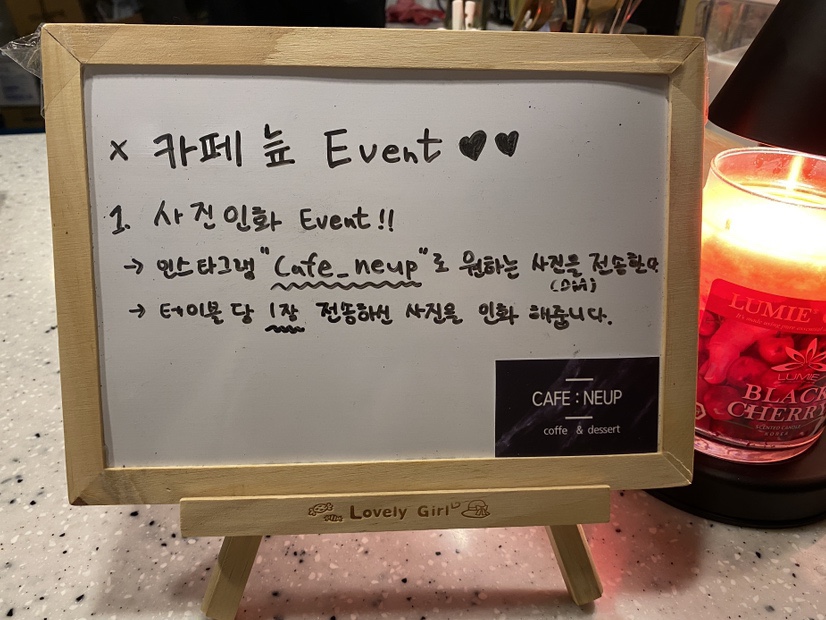 x 카페 늪 Event ♥♥
1. 사진인화 Event!!
→ 인스타그램 "Cafe_neup"로 원하는 사진을 전송한다.
(DM)
→ 테이블 당 1장 전송하신 사진을 인화 해줍니다.
CAFE : NEUP
coffe & dessert
Lovely Girl
LUMIE
LUMIE
BLACK
CHERRY
SCENTED CANDLE